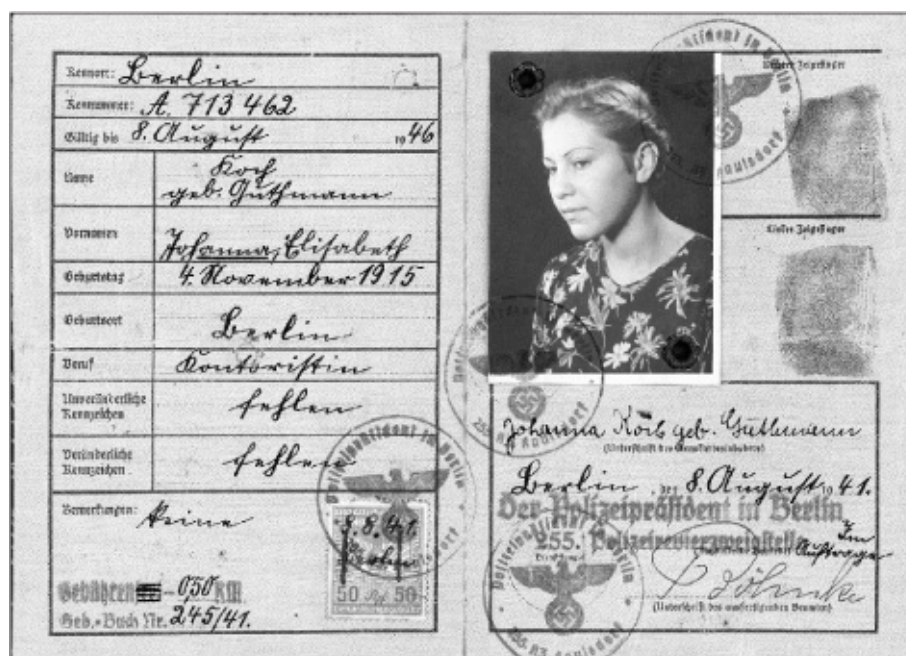 Kennort: Berlin
Kennnummer: A. 713 462
Gültig bis 8. August 1946
Name Koch
geb. Guthmann
Vornamen Johanna, Elisabeth
Geburtstag 4. November 1915
Geburtsort Berlin
Beruf Kontoristin
Unveränderliche Kennzeichen fehlen
Veränderliche Kennzeichen fehlen
Bemerkungen: Keine
8.8.41.
50 Rpf 50
Gebühren - 0,50 RM.
Geb.-Buch Nr. 245/41.
Polizeipräsident in Berlin
Rechter Zeigefinger
Linker Zeigefinger
Polizeipräsident in Berlin
Johanna Koch geb. Guthmann
(Unterschrift des Kennkarteninhabers)
Berlin, den 8. August 1941.
Der Polizeipräsident in Berlin
255. Polizeirevierzweigstelle
Im Auftrage
(Unterschrift des ausfertigenden Beamten)
Polizeipräsident in Berlin